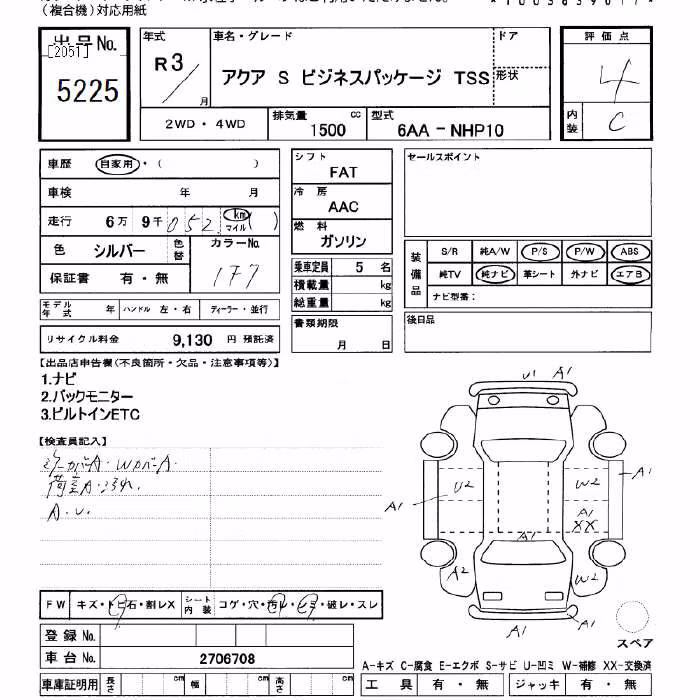 (複合機)対応用紙
出品No.
[2051]
5225
年式
R3
月
車名・グレード
アクア S ビジネスパッケージ TSS
ドア
形状
評価点
4
内装
C
2WD・4WD
排気量
1500
cc
型式
6AA-NHP10
車歴
自家用・( )
車検 年 月
走行 6万 9千 052 km ( )
マイル
色 シルバー
色替
カラーNo.
177
保証書 有・無
モデル年式 年
ハンドル 左・右
ディーラー・並行
リサイクル料金 9,130 円 預託済
シフト
FAT
冷房
AAC
燃料
ガソリン
乗車定員 5 名
積載量 kg
総重量 kg
書類期限
月 日
セールスポイント
装備品
S/R 純A/W P/S P/W ABS
純TV 純ナビ 革シート 外ナビ エアB
ナビ型番:
後日品
【出品店申告欄(不良箇所・欠品・注意事項等)】
1.ナビ
2.バックモニター
3.ビルトインETC
【検査員記入】
A・U.
FW キズ・トビ石・割レX
シート内装
コゲ・穴・汚レ・シミ・破レ・スレ
登録No.
車台No. 2706708
車庫証明用 長さ cm 幅 cm 高さ cm
U1 A1
A1
U2
W2
A1
A1
XX
A1
A2
W2
A1
A1
スペア
A-キズ C-腐食 E-エクボ S-サビ U-凹ミ W-補修 XX-交換済
工具 有・無 ジャッキ 有・無